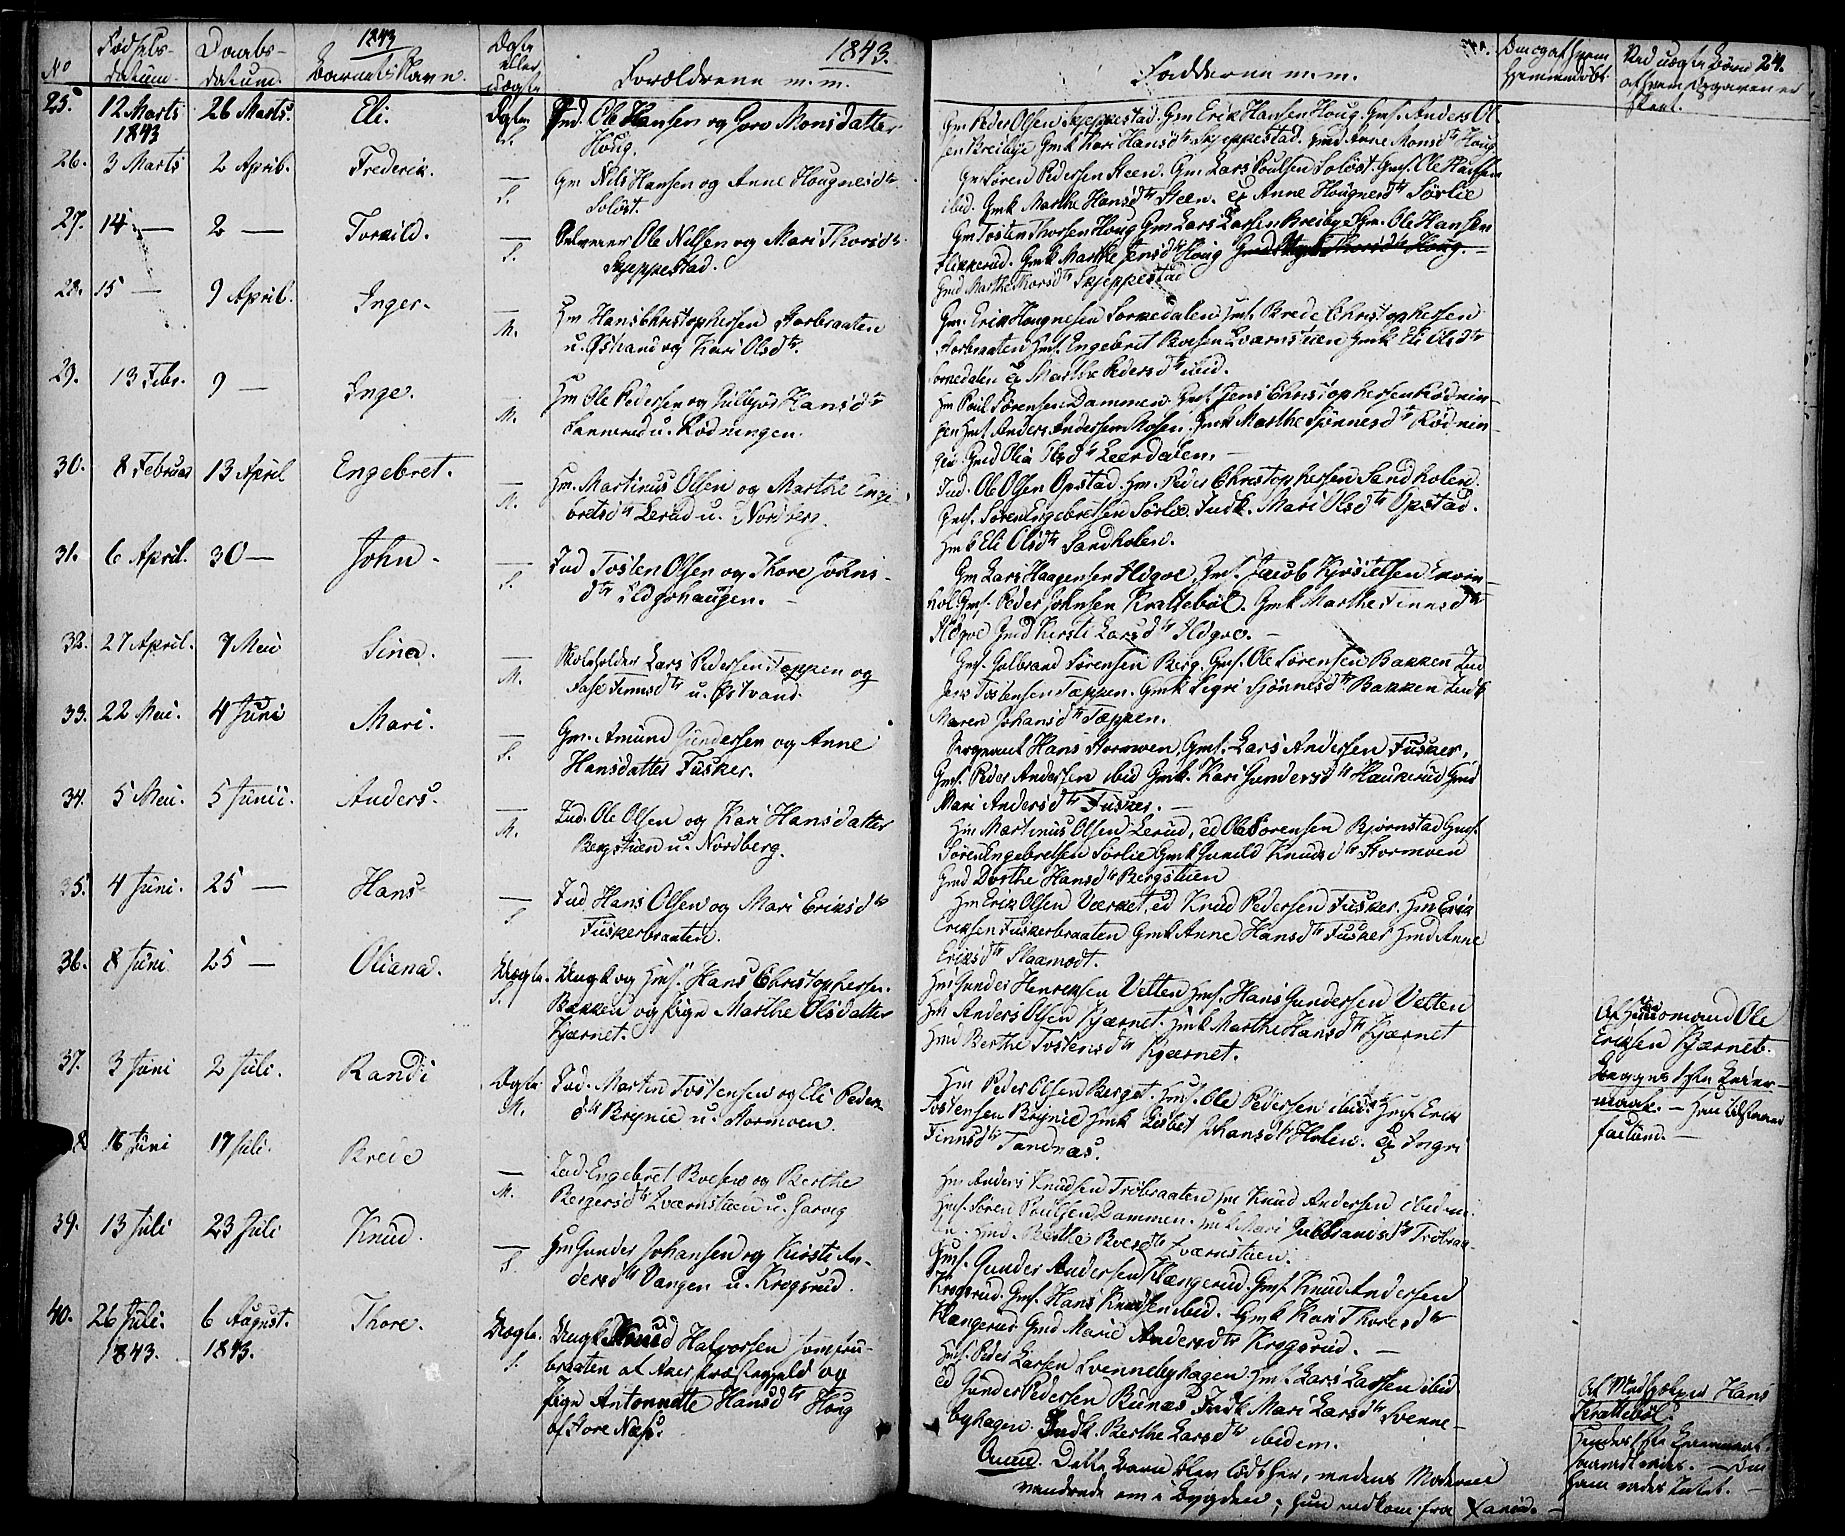 No
Fødsels-
datum.
Daabs-
datum.
1843
Barnets Navn.
Ægte
eller
Uægte
1843.
Forældrene m. m.
Fadderne m. m.
Om og af hvem
hjemmedøbt
Ved uægte Børn
24.
25. 12 Marts 1843 26 Marts. Eli. Ægte.
Ole Hansen og Goro Monsdatter
Houg.
Gm Peder Olsen Skjeppestad. Gm Erik Hansen Houg. Gmf. Anders Ol-
sen Breibye Gmk Kari Hansdtr Skjeppestad. Anne Monsdtr Houg
26. 3 Marts 2 April. Frederik. — S.
Gm Nils Hansen og Anne Hougnesdtr
Soløst.
Gm Søren Pedersen Steen. Gm Lars Poulsen Soløst. Gmf. Ole Hansen
ibid. Gmk Marthe Hansdtr Steen. Anne Hougnesdtr Sørlie
27. 14 — 2 — Torkild. — S.
Ole Nilsen og Mari Thorsdtr
Skjeppestad.
Gm Tosten Thorsen Houg Gm Lars Larsen Breibye Gm. Ole Hansen
Flikkerud. Gmk Marthe Jensdtr Houg
Gmd Marthe Thorsdtr Skjeppestad
28. 15 — 9 April. Inger. — M.
Hm Hans Christophersen Storbraaten
u. og Kari Olsdtr.
Gm. Erik Hougnesen Sornedalen Hmf. Brede Christophersen
Storbraaten Hmf. Engebret Boesen Qvarnstuen Gmk Eli Olsdtr
Sornedalen Marthe Pedersdtr ibid.
29. 13 Febr. 9 — Inge. — M.
Hm Ole Pedersen og Gulbjør Hansdtr
u. Rødningen.
Hm Poul Sørensen Dammen. Gmf. Jens Christophersen Rødnin-
gen Hmf. Anders Andersen Mosen. Gmk Marthe Sjønnesdtr Rødnin-
gen. Gmd Olia Olsdtr Leerdalen.
30. 8 Februar 13 April Engebret. — M.
Hm. Martinus Olsen og Marthe Enge-
bretsdtr Lerud u. Nordberg.
Ind. Ole Olsen Opstad. Hm. Peder Christophersen Sandholen.
Gmf. Søren Engebretsen Sørlie. Indk. Mari Olsdtr Opstad.
Hmk Eli Olsdtr Sandholen.
31. 6 April. 30 — John. — S.
Ind Tosten Olsen og Thore Johns-
dtr Ildjohaugen.
Gm Lars Haagensen Ildgoe. Gmf. Jacob Kjostelsen
Gmf. Peder Johnsen Krattebøl. Gmk Marthe Finnsdtr
Ildgoe Gmd Kirsti Larsdtr Ildgoe.
32. 27 April. 7 Mai Sina. — M.
Skoleholder Lars Pedersen Tæppen og
Aase Finnsdtr u. Østvand.
Gmf. Gulbrand Sørensen Berg. Gmf. Ole Sørensen Bakken Ind
Jens Tostensen Tæppen. Gmk Sigri Sjønnesdtr Bakken Indk
Maren Johansdtr Tæppen.
33. 22 Mai. 4 Juni Mari. — S.
Gm. Amund Gundersen og Anne
Hansdatter Fusker.
Sergeant Hans Stormoen. Gmf. Lars Andersen Fusker,
Gmf. Peder Andersen ibid Gmk. Kari Gundersdtr Haukerud Gmd
Mari Andersdtr Fusker.
34. 5 Mai. 5 Junii. Anders. — M.
Ind. Ole Olsen og Kari Hansdatter
Bergstuen u. Nordberg.
Hm Martinus Olsen Lerud, ed Ole Sørensen Bjørnstad Gmf.
Søren Engebretsen Sørlie Gmk Gunild Knudsdtr Stormoen
Gmd Dorthe Hansdtr Bergstuen
35. 4 Juni. 25 — Hans — S
Ind Hans Olsen og Mari Eriksdtr
Fuskerbraaten.
Hm Erik Olsen Værket, ed Knud Pedersen Fusker. Hm Erik
Eriksen Fuskerbraaten Gmk Anne Hansdtr Fusker Hmd Anne
Eriksdtr Slaamodt.
36. 8 Juni 25 — Oliana. Uægte. S.
Ungk. og Hmf. Hans Christophersen
Bakken og Pige Marthe Olsdatter
Kjærnet.
Hm Gunder Henriksen Velten Hmf. Hans Gundersen Velten
Hm Anders Olsen Kjærnet. Hmk Marthe Hansdtr Kjærnet
Hmd Berthe Tostensdtr Kjærnet.
Ole
Eriksen Kjærnet.
Begges 1ste Leier-
maal.
37. 3 Juni 2 Juli. Randi Ægte M.
Ind. Morten Tostensen og Eli Peders-
dtr Brynie u. Stormoen.
Hm Peder Olsen Berget. Hmf. Ole Pedersen ibid. Hmf. Erik
Tostensen Brynie Hmk Lisbet Johansdtr Holen. Ingri
Finnsdtr Tandnæs.
16 Juni 17 Juli. Breie — M.
Ind. Engebret Boesen og Berthe
Bergersdtr Qværnstuen u. Garvig
Hm Anders Knudsen Trøbraaten Hm Knud Andersen ibidem.
Hmf. Søren Poulsen Dammen. Hmk Mari Gulbrandsdtr Trøbraa-
ten. Hmd. Berthe Boesdtr Qværnstuen.
39. 13 Juli 23 Juli Knud. — S.
Hm Gunder Johansen og Kirsti An-
dersdtr Vangen u. Krogsrud.
Gmf. Gunder Andersen Klangerud. Gmf. Knud Andersen
Krogsrud. Gmf. Hans Knudsen ibid. Gmk Kari Thoresdtr
Klangerud Gmd Marie Andersdtr Krogsrud. —
40. 26 Juli. 1843. 6 August. 1843. Thore. Uægte. S.
Ungk Knud Halvorsen
braaten af Aker Præstegjeld og
Pige Antonnette Hansdtr Houg
af Store Næs.
Hmf. Peder Larsen Svennebyhagen Hmf. Lars Larsen ibid
ed Gunder Pedersen Bunæs Indk Mari Larsdtr Svenne-
byhagen. Indk. Berthe Larsdtr ibidem.
Anm. Dette Barn blev født her, medens Moderen
vandrede om i Bygden; hun nedkom fra
Hans
Krattebøl.